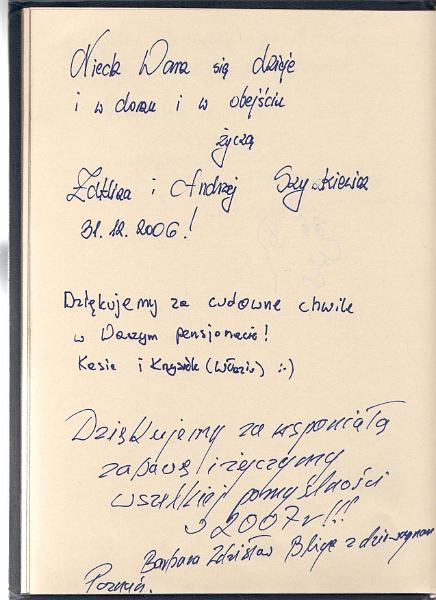 Niech Wam się dzieje
i w domu i w obejściu
życzą
i Andrzej
31.12.2006!
Dziękujemy za cudowne chwile
w Waszym pensjonacie!
Kasia i Krzysiek (Włodzio) :-)
Dziękujemy za wspaniałą
zabawę i życzymy
wszelkiej pomyślności
w 2007r!!!
Barbara Zdzisław z
Poznań.